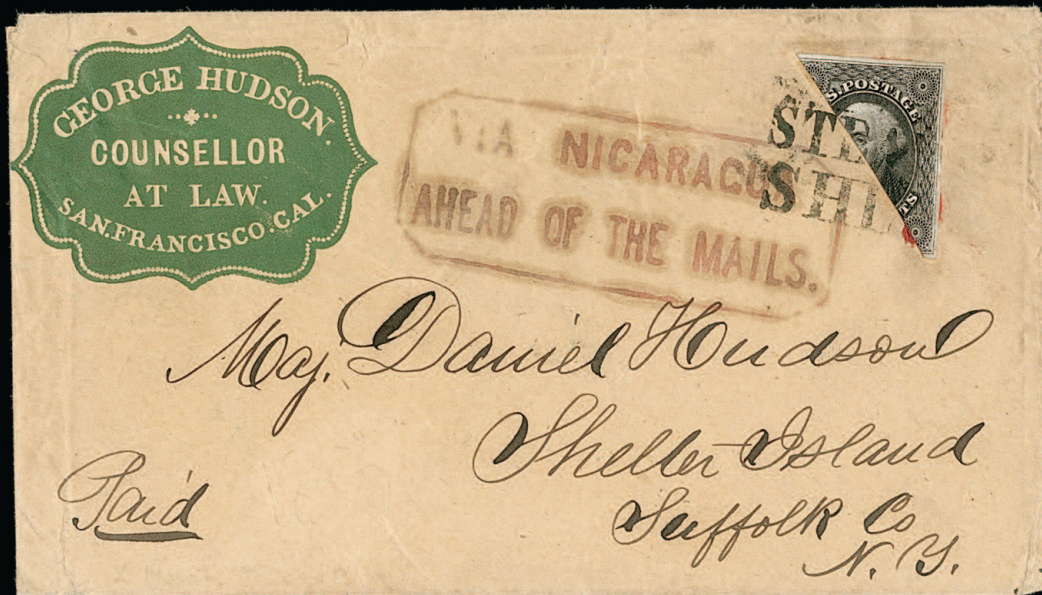 GEORGE HUDSON.
COUNSELLOR
AT LAW.
SAN.FRANCISCO.CAL.
VIA NICARAGU
AHEAD OF THE MAILS.
S. POSTAGE
TS
STEA
SHI
Maj. Daniel Hudson
Shelter Island
Suffolk Co
N. Y.
Paid